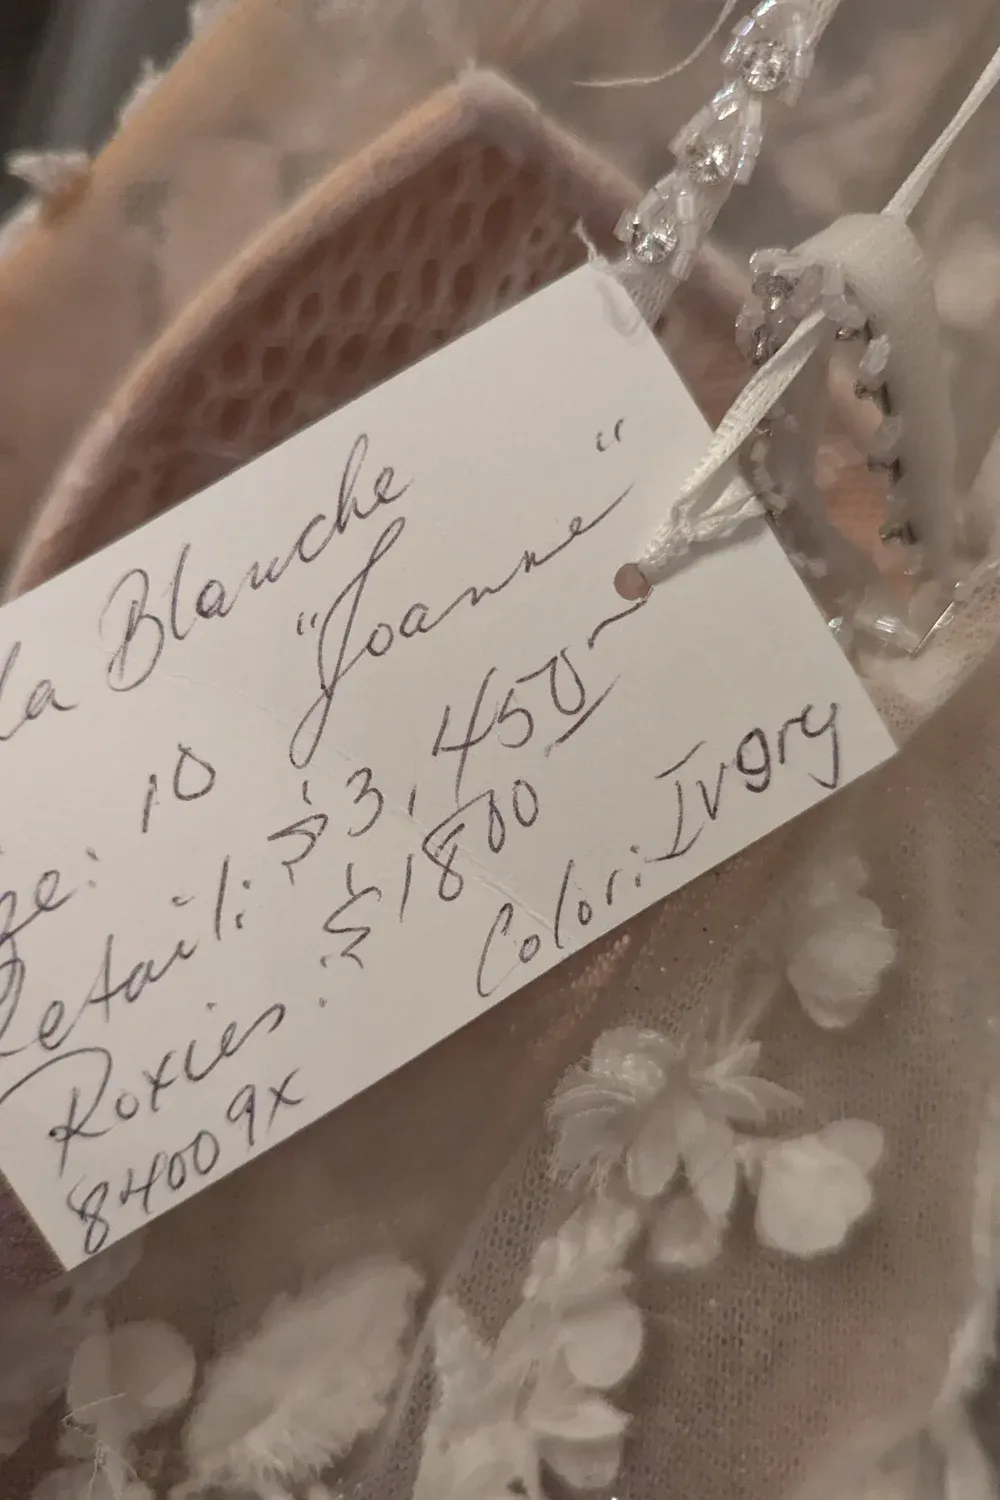 La Blanche
"Joanne"
ze: 10
Retail: $3,450
Roxies: $1800
Color: Ivory
84009X